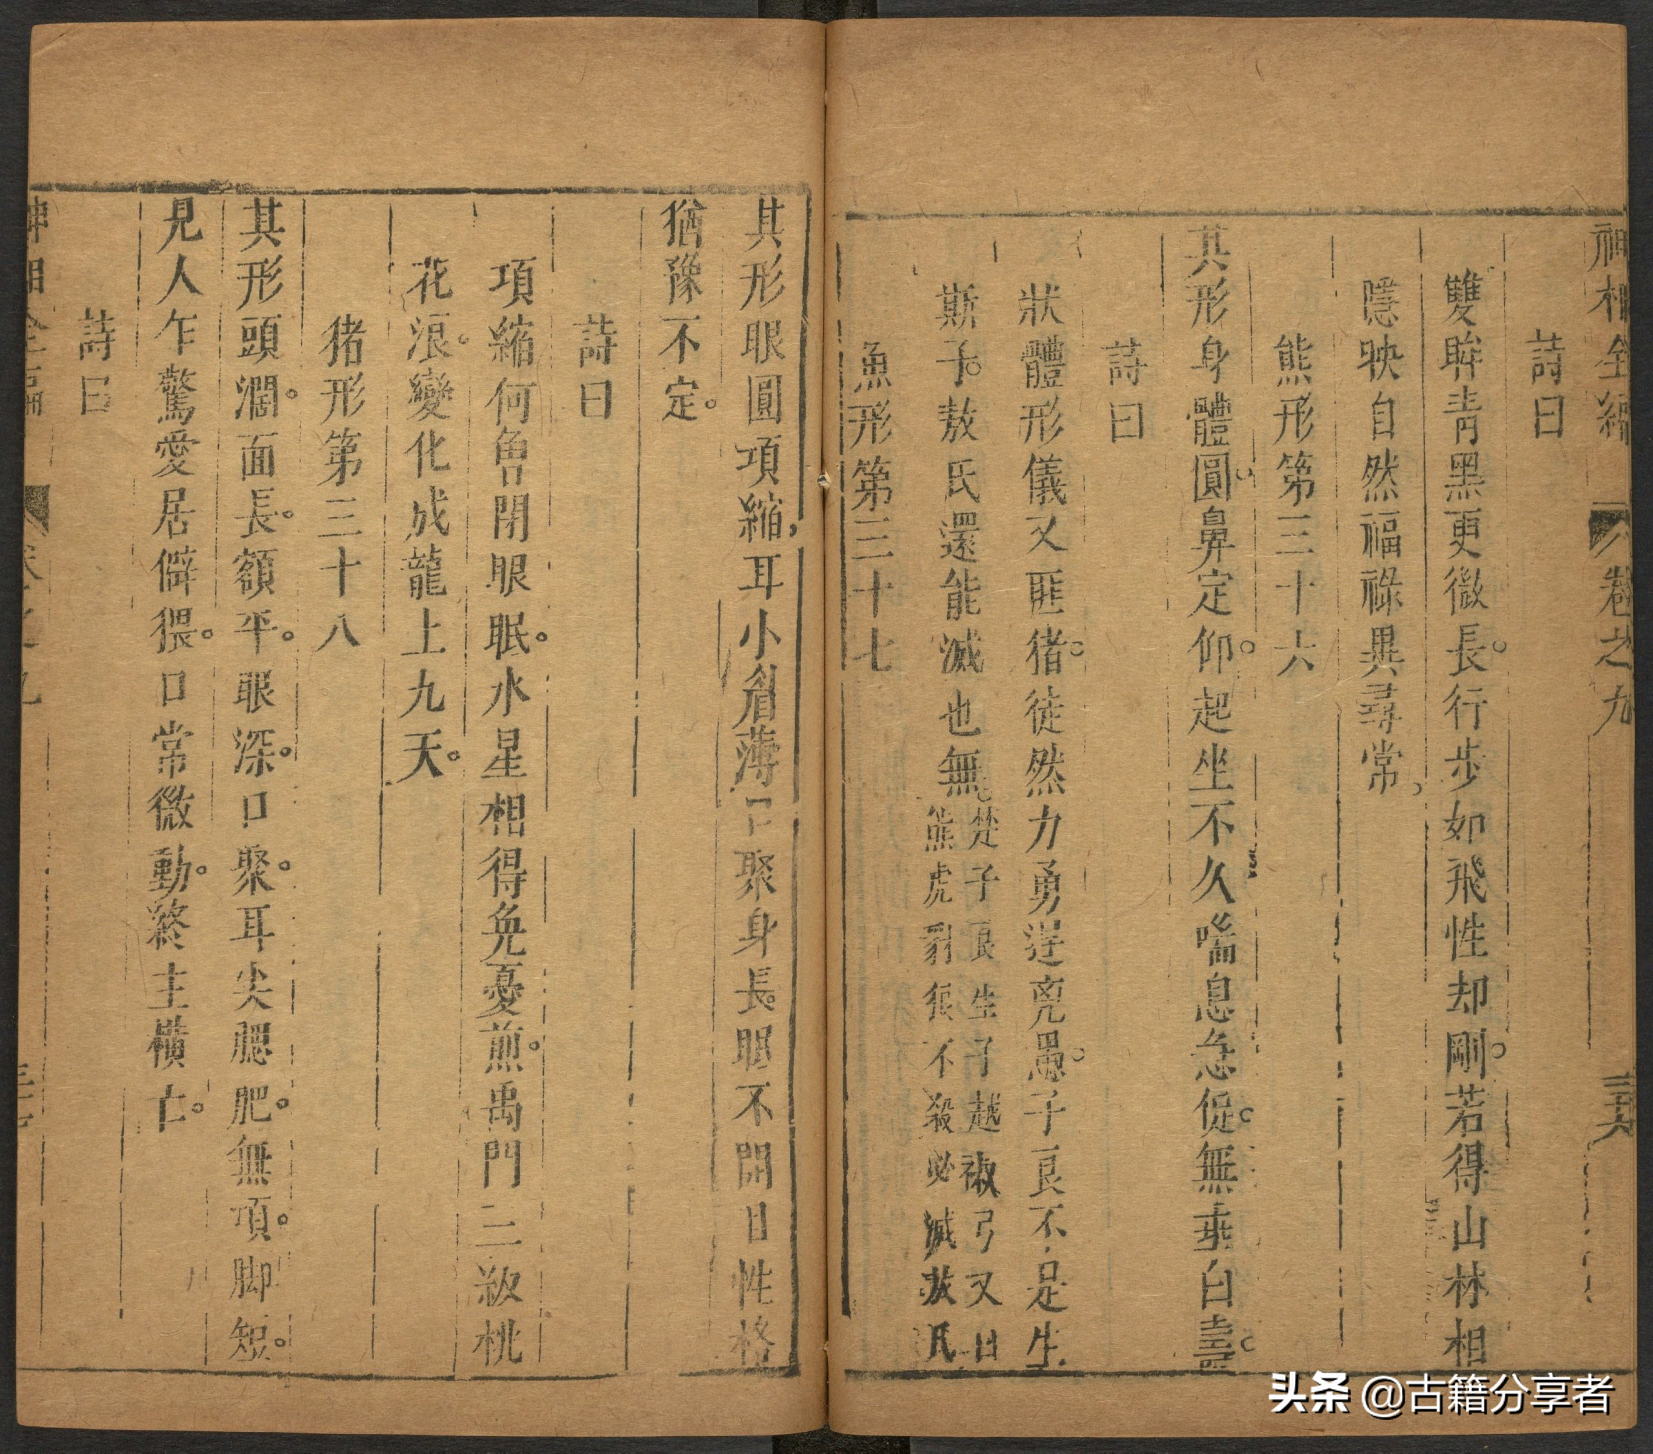 神相全編 卷之九 三十六
詩曰
雙眸青黑更微長。行步如飛性却剛。若得山林相
隱映自然福祿異尋常
熊形第三十六
其形身體圓鼻定仰。起坐不久喘息急促。無乖白壽。
詩曰
狀體形儀又匪猪。徒然力勇逞兇愚。子良不是生
斯子。敖氏還能滅也無。
楚子良生子越椒弓又曰
熊虎豺狼不殺必滅敖氏
魚形第三十七
其形眼圓項縮，耳小眉薄口聚身長。眼不開日性格
猶豫不定。
詩曰
項縮何魯閉眼眠。水星相得免憂煎。禹門三級桃
花浪。變化成龍上九天。
猪形第三十八
其形頭濶。面長。額平。眼深。口聚。耳尖腮肥。無項。脚短。
見人乍驚愛居僻猥。口常微動。終主橫亡。
詩曰
神相全編 卷之九